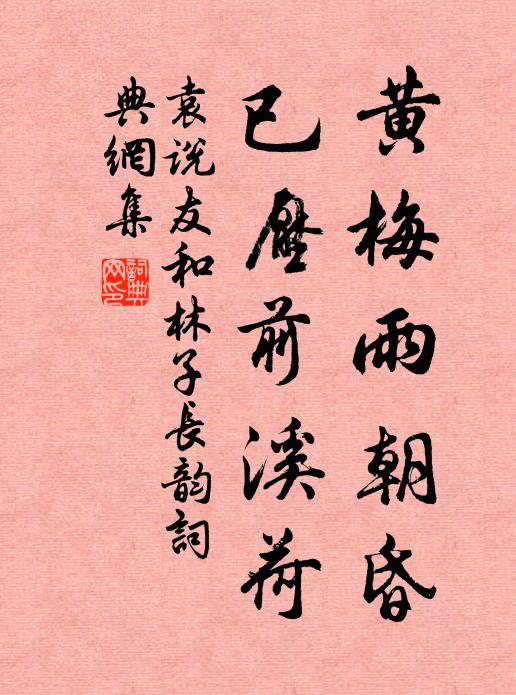 黃梅雨朝昏
已壓前溪荷
袁說友和林子長韵詞
典網集
詞典网印